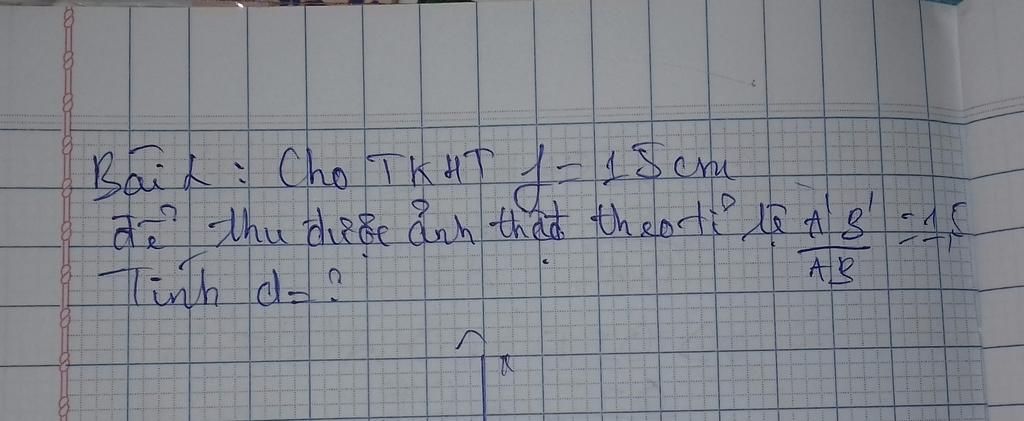 Bài 2: Cho TKHT f = 15cm
để thu được ảnh thật theo tỉ lệ A'B'/AB = 1,5
Tính d = ?